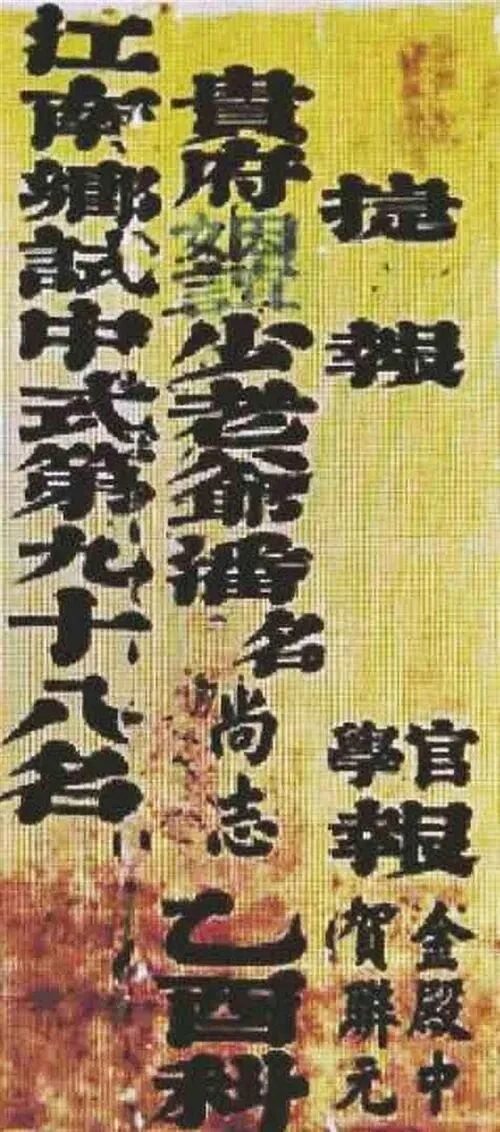 捷報 官學報 金殿中賀聯元
貴府姻誼少老爺潘名尚志乙酉科
江南鄉試中式第九十八名